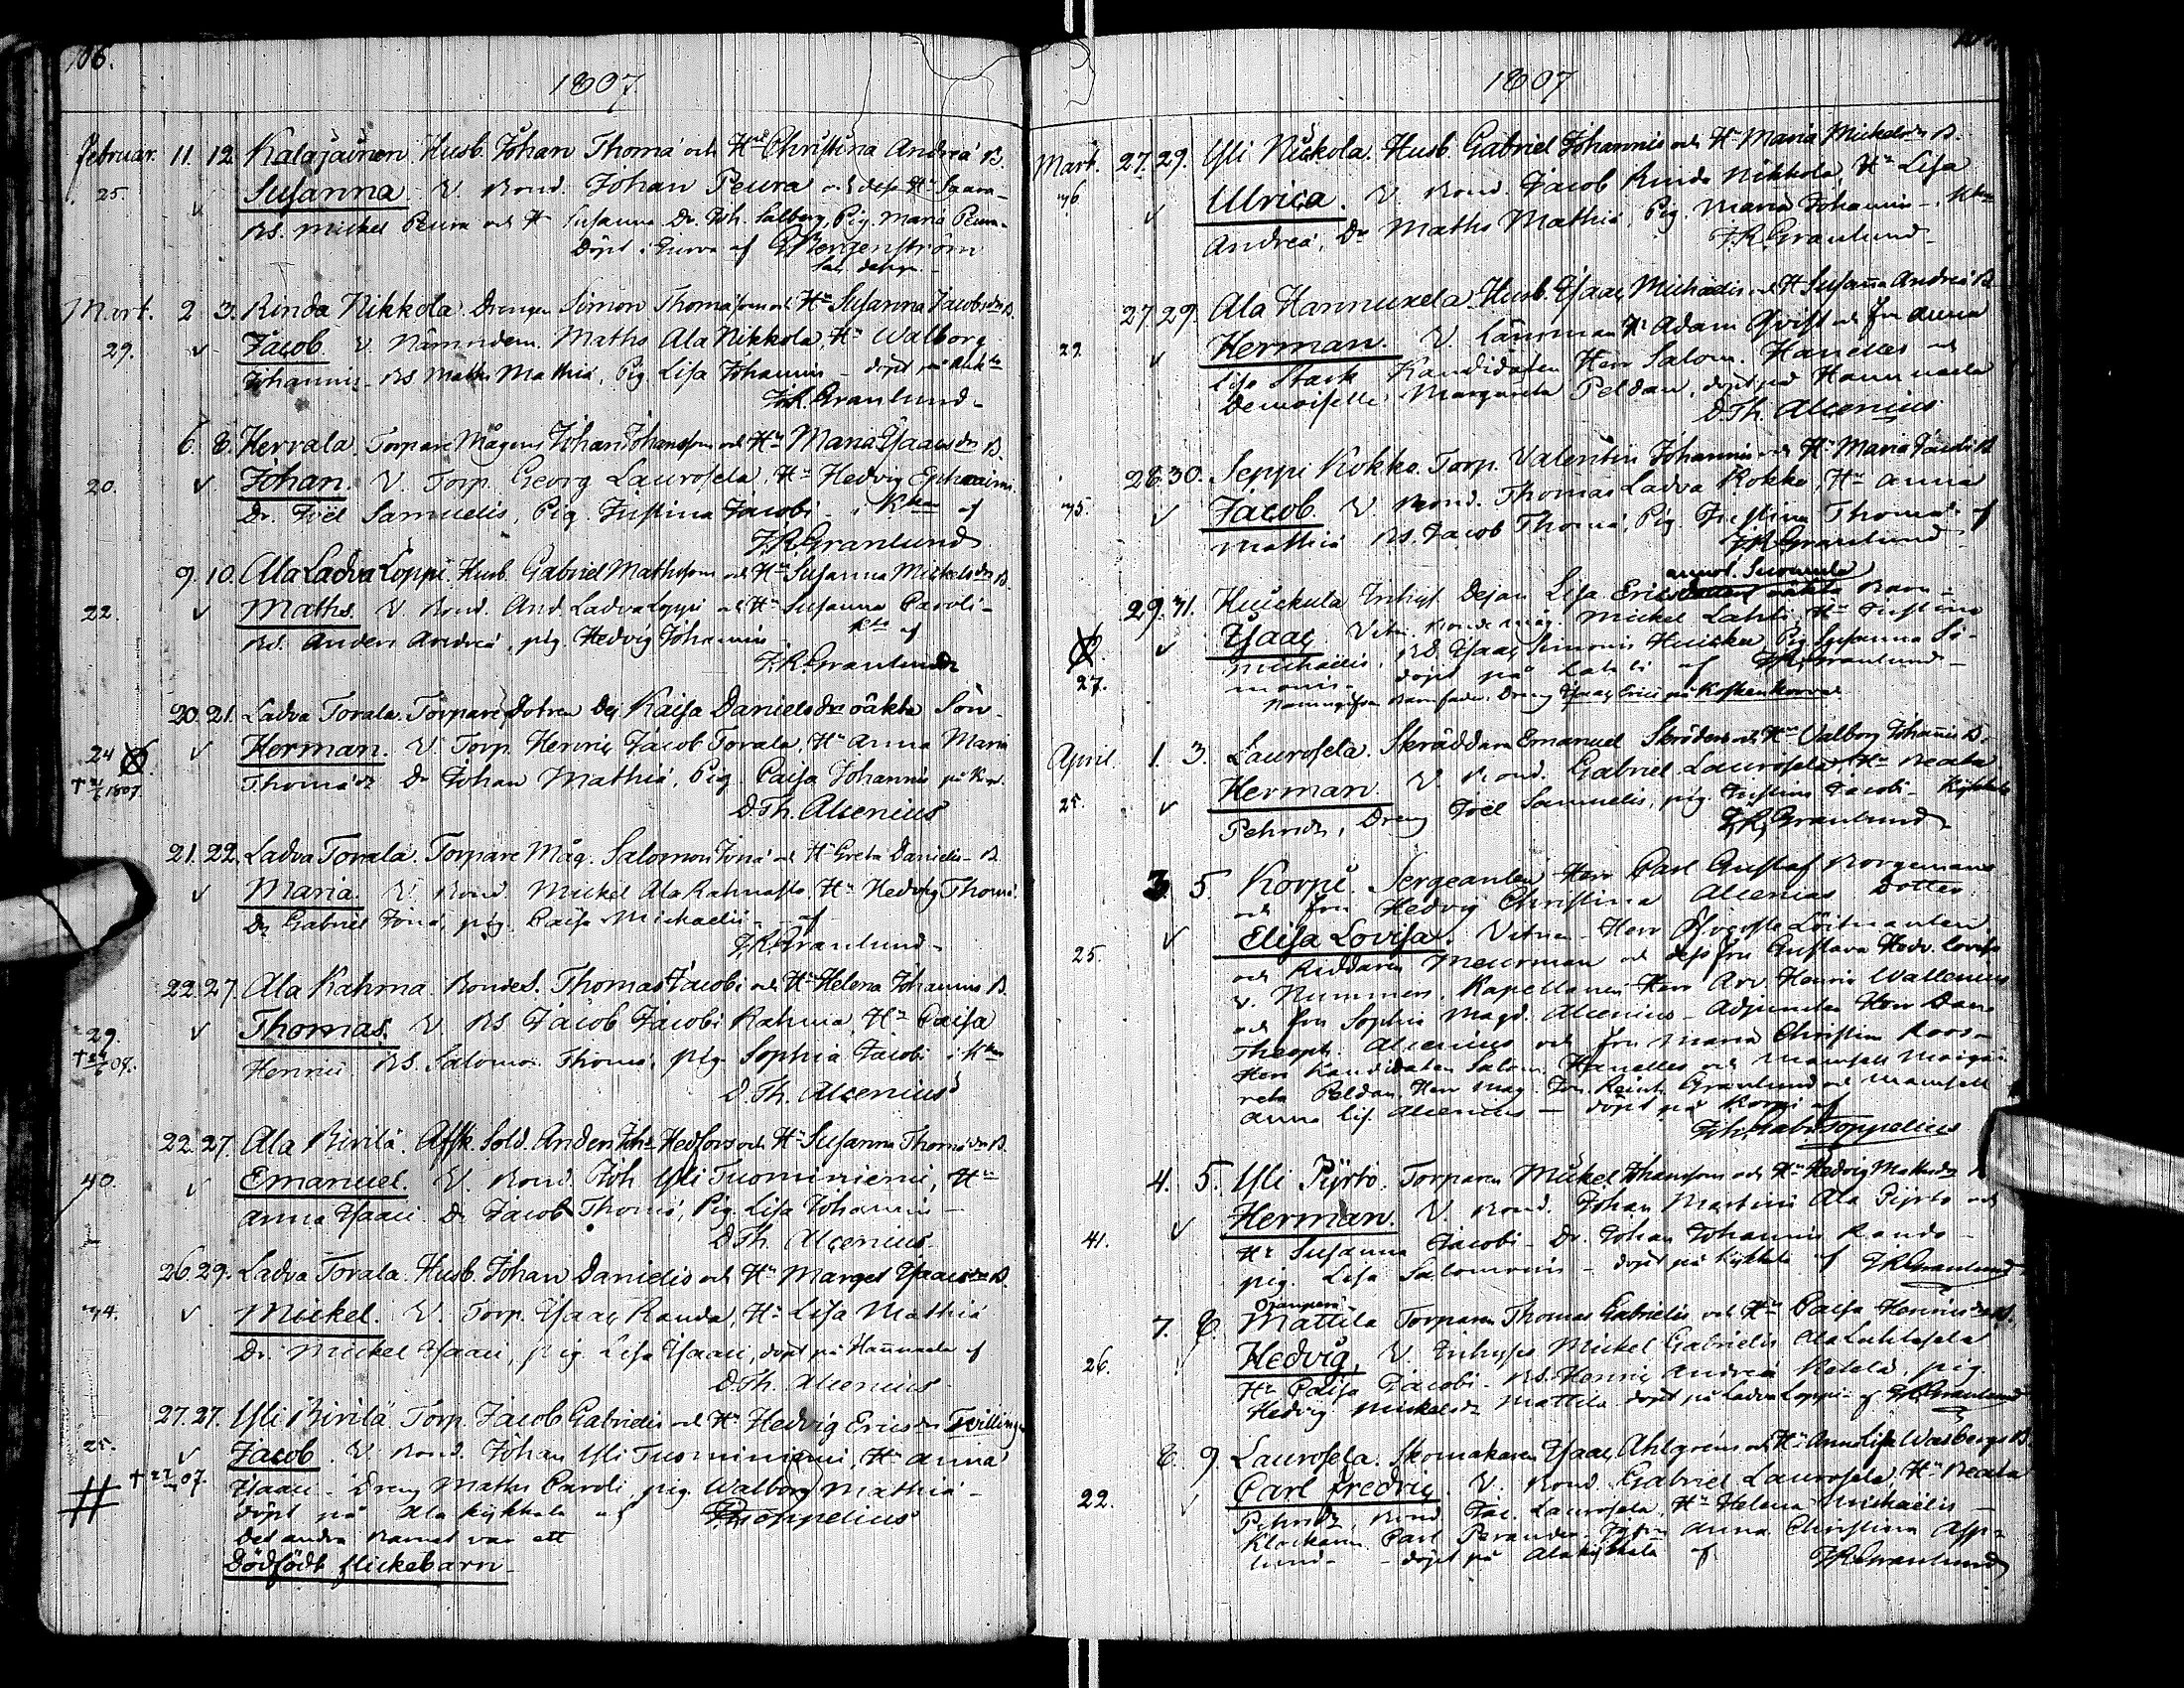 106.
1807.
Februar. 11. 12. Kalajainen. Husb. Johan Thomæ och Hu Christina Andreæ B.
25. Susanna. V. Bond. Johan Peura och dess Hu Saara
BS. Mickel Peura och Hu Susanna Dr. Joh. Salberg, Pig. Maria Peura
Döpt i Evira af G Bergenström
Mart. 2. 3. Rinda Nikkola Drengen Simon Thomæson och Hu Susanna Jacobsdr B.
29. Jacob V. Nämndem. Maths Ala Nikkola, Hu Walborg
Johannis BS Maths Mathiæ, Pig. Lisa Johannis - döpt på
J.R. Granlund
6. 8. Hervala. Torpare Mågens Johan Johansson och Hu Maria Isaacsdr B.
20. Johan. V. Torp. Georg Laurosela, Hu Hedvig Ephraims
Dr. Joël Samuelis, Pig. Justina Jacobi i Kkan af
J.R. Granlund
9. 10. Ala Ladva Loppi. Husb. Gabriel Mathsson och Hu Susanna Mickelsdr B.
22. Maths. V. Bond. And. Ladva Loppi och Hu Susanna Caroli
BS. Anders Andreæ, pig. Hedvig Johannis af
J.R. Granlund
20. 21. Ladva Torala. Torpare Dotren Dej Kaisa Danielsdr oäkta Son
24 Herman. V. Torp. Henric Jacob Torala, Hu Anna Maria
1807. Thomædr Dr Johan Mathiæ, Pig. Caisa Johannis
D. Th. Alcenius
21. 22. Ladva Torala. Torpare Måg. Salomon Jonæ och Hu Greta Danielis B
Maria. V. Bond. Mickel Ala Rahnasto, Hu Hedvig Thomæ
Dr Gabriel Jonæ, pig. Caisa Michaelis af
J.R. Granlund
22. 27. Ala Rahma. Bonde S. Thomas Jacobi och Hu Helena Johannis B.
29. Thomas. V. BS Jacob Jacobi Rahma, Hu Caisa
Henrici BS. Salomon Thomæ, pig. Sophia Jacobi i Kkan
D. Th. Alcenius
22. 27. Ala Rivilä. Afsk. Sold. Anders Joh. Hedfors och Hu Susanna Thomædr B.
40. Emanuel. V. Bond. Joh Yli Tuominiemi, Hu
Anna Isaaci Dr Jacob Thomæ, Pig. Lisa Johannis
D Th. Alcenius
26. 29. Ladva Torala. Husb. Johan Danielis och Hu Marget Isaacsdr B.
34. Mickel. V. Torp. Isaac Randa, Hu Lisa Mathiæ
Dr. Mickel Isaaci, pig. Lisa Isaaci, döpt på Hannuxela af
D. Th. Alcenius
27. 27. Yli Rivilä Torp. Jacob Gabrielis och Hu Hedvig Ericsdr Tvillingar
25. Jacob. V. Bond. Johan Yli Tuominiemi, Hu Anna
Isaaci - Dreng Maths Caroli, pig. Walborg Mathiæ
döpt på Ala Kykkala af Toppelius
Det andra Barnet var ett
Dödfödt flickebarn
1807
Mart. 27. 29. Yli Nuckola. Husb. Gabriel Johannis och Hu Maria Mickelsdr B.
36 Ulrica. V. Bond. Jacob Rinda Nikkola, Hu Lisa
Andreæ, Dr Maths Mathiæ, Pig. Maria Johannis
J.R. Granlund
27. 29. Ala Hannuxela Husb. Isaac Michaelis och Hu Susanna Andreæ B
29. Herman. V. Länsman Hr Adam Qvist och Fru Anna
Lisa Stark Kandidaten Herr Salom. Hanelles och
Demoiselle Margareta Peldan, döpt på Hannuxela
D. Th. Alcenius
28. 30. Seppi Kokko. Torp. Valentin Johannis och Hu Maria Jacobi B
35. Jacob. V. Bond. Thomas Ladva Kokko, Hu Anna
Mathiæ BS. Jacob Thomæ, Pig. Justina Thomæ af
J.R. Granlund
29. 31. Huickula Inhys. Dejan Lisa Ericsdotters oäkta Barn
Isaac. Vitn. Bonde måg. Mickel Lahti, Hu Justina
Michaelis, BD Isaac Simonis Huicku Pig Susanna Si-
27. monis - döpt på Lahti af J.R. Granlund
Barnfader Dreng Isaac Erici på Koskenkorva
April. 1. 3. Laurosela. Skräddare Emanuel Skröder och Hu Valborg Johannis B.
25. Herman V. Bond. Gabriel Laurosela, Hu Beata
Petrisdr, Dreng Joël Samuelis, pig. Justina Jacobi - Kykkala
J.R. Granlund
3. 5. Korpi. Sergeanten Herr Carl Gustaf Borgemans
och Fru Hedvig Christina Alcenias Dotter
25. Elisa Lovisa. Vitnen Herr Öfverste Löitnanten
och Riddaren Meurman och dess Fru Gustava Hedv. Lovisa
v. Nummers. Kapellanen Herr Arv. Henric Wallenius
och Fru Sophia Magd. Alcenius - Adjuncten Herr Dan.
Theoph. Alcenius och Fru Maria Christina Roos
Herr Kandidaten Salom. Hanelles och Mamsell Marga-
reta Peldan. Herr Mag. Joh. Reinh. Granlund och Mamsell
Anna Lis. Alcenius - döpt på Korpi af
Joh. Gabr. Toppelius
4. 5. Yli Pyrto. Torparen Mickel Johansson och Hu Hedvig Mathsdr
41. Herman. V. Bond. Johan Martini Ala Pyrto och
Hu Susanna Jacobi - Dr. Johan Johannis Randa
pig. Lisa Salomonis - döpt på Kykkala af J.R. Granlund
7. 8. Mattila Torparen Thomas Gabrielis och Hu Caisa Henricsdr B.
26. Hedvig, V. Inhyses Mickel Gabrielis Ala Luhtasela
Hu Caisa Jacobi - BS. Henric Andreæ, pig.
Hedvig Mickelsdr Mattila döpt på Ladva Loppi af J.R. Granlund
8. 9. Laurosela. Skomakaren Isaac Ahlgrens och Hu Anna Lisa Wasbergs B
22. Carl Fredric. V. Bond. Gabriel Laurosela, Hu Beata
Petrisdr, Bond Jac. Laurosela, Hu Helena Michaelis
Klockaren Carl Perander Anna Christina Asp-
lund - döpt på Ala Kykkala af J.R. Granlund